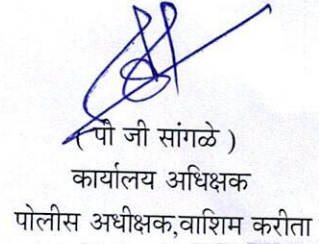 ( पी जी सांगळे )
कार्यालय अधिक्षक
पोलीस अधीक्षक,वाशिम करीता